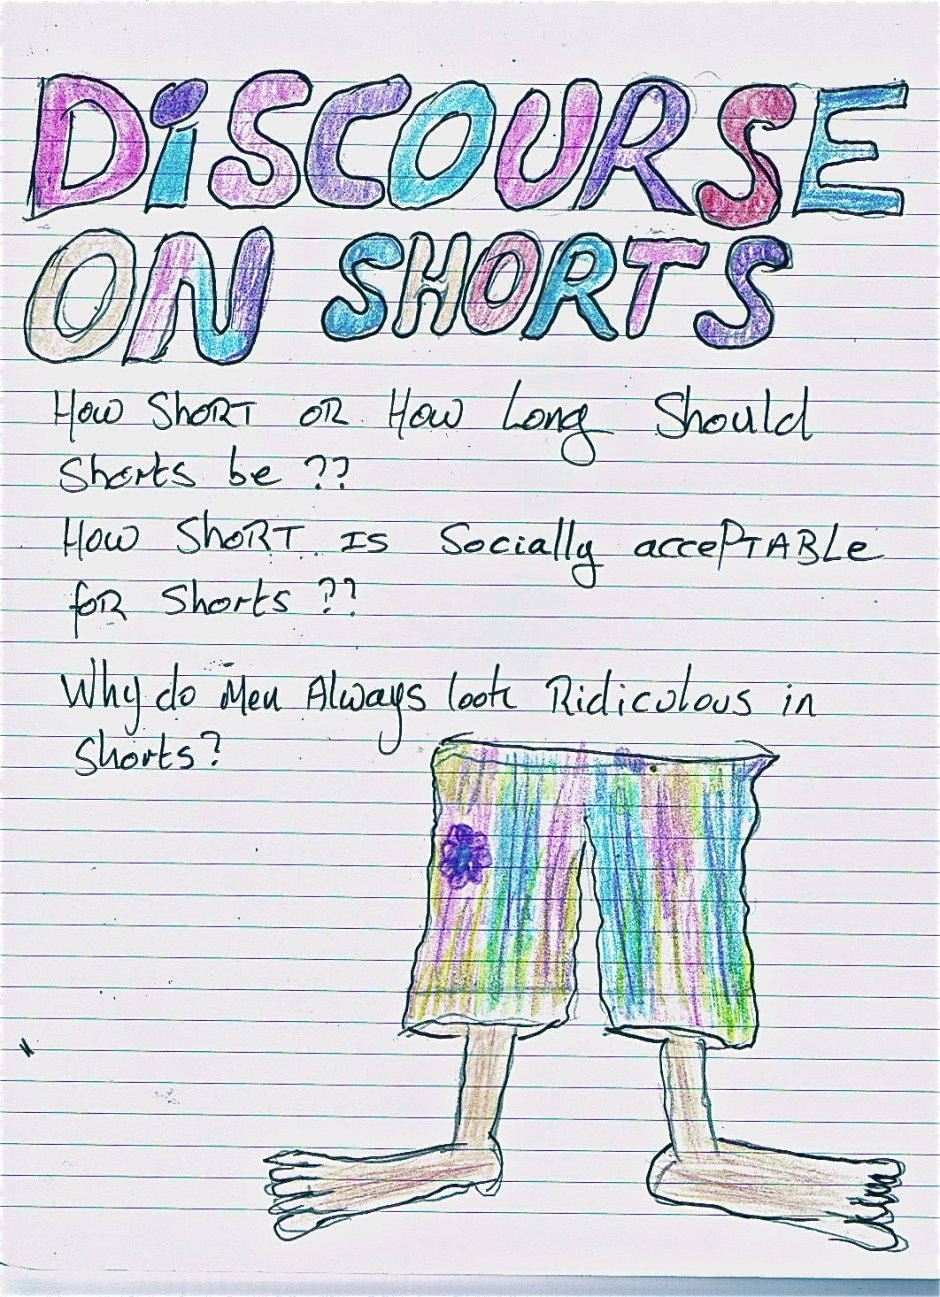 DiSCOURSE
ON SHORTS
How SHORT OR How Long Should
Shorts be ??
How SHORT IS Socially accePTABLe
for Shorts ??
Why do Men Always look Ridiculous in
Shorts?